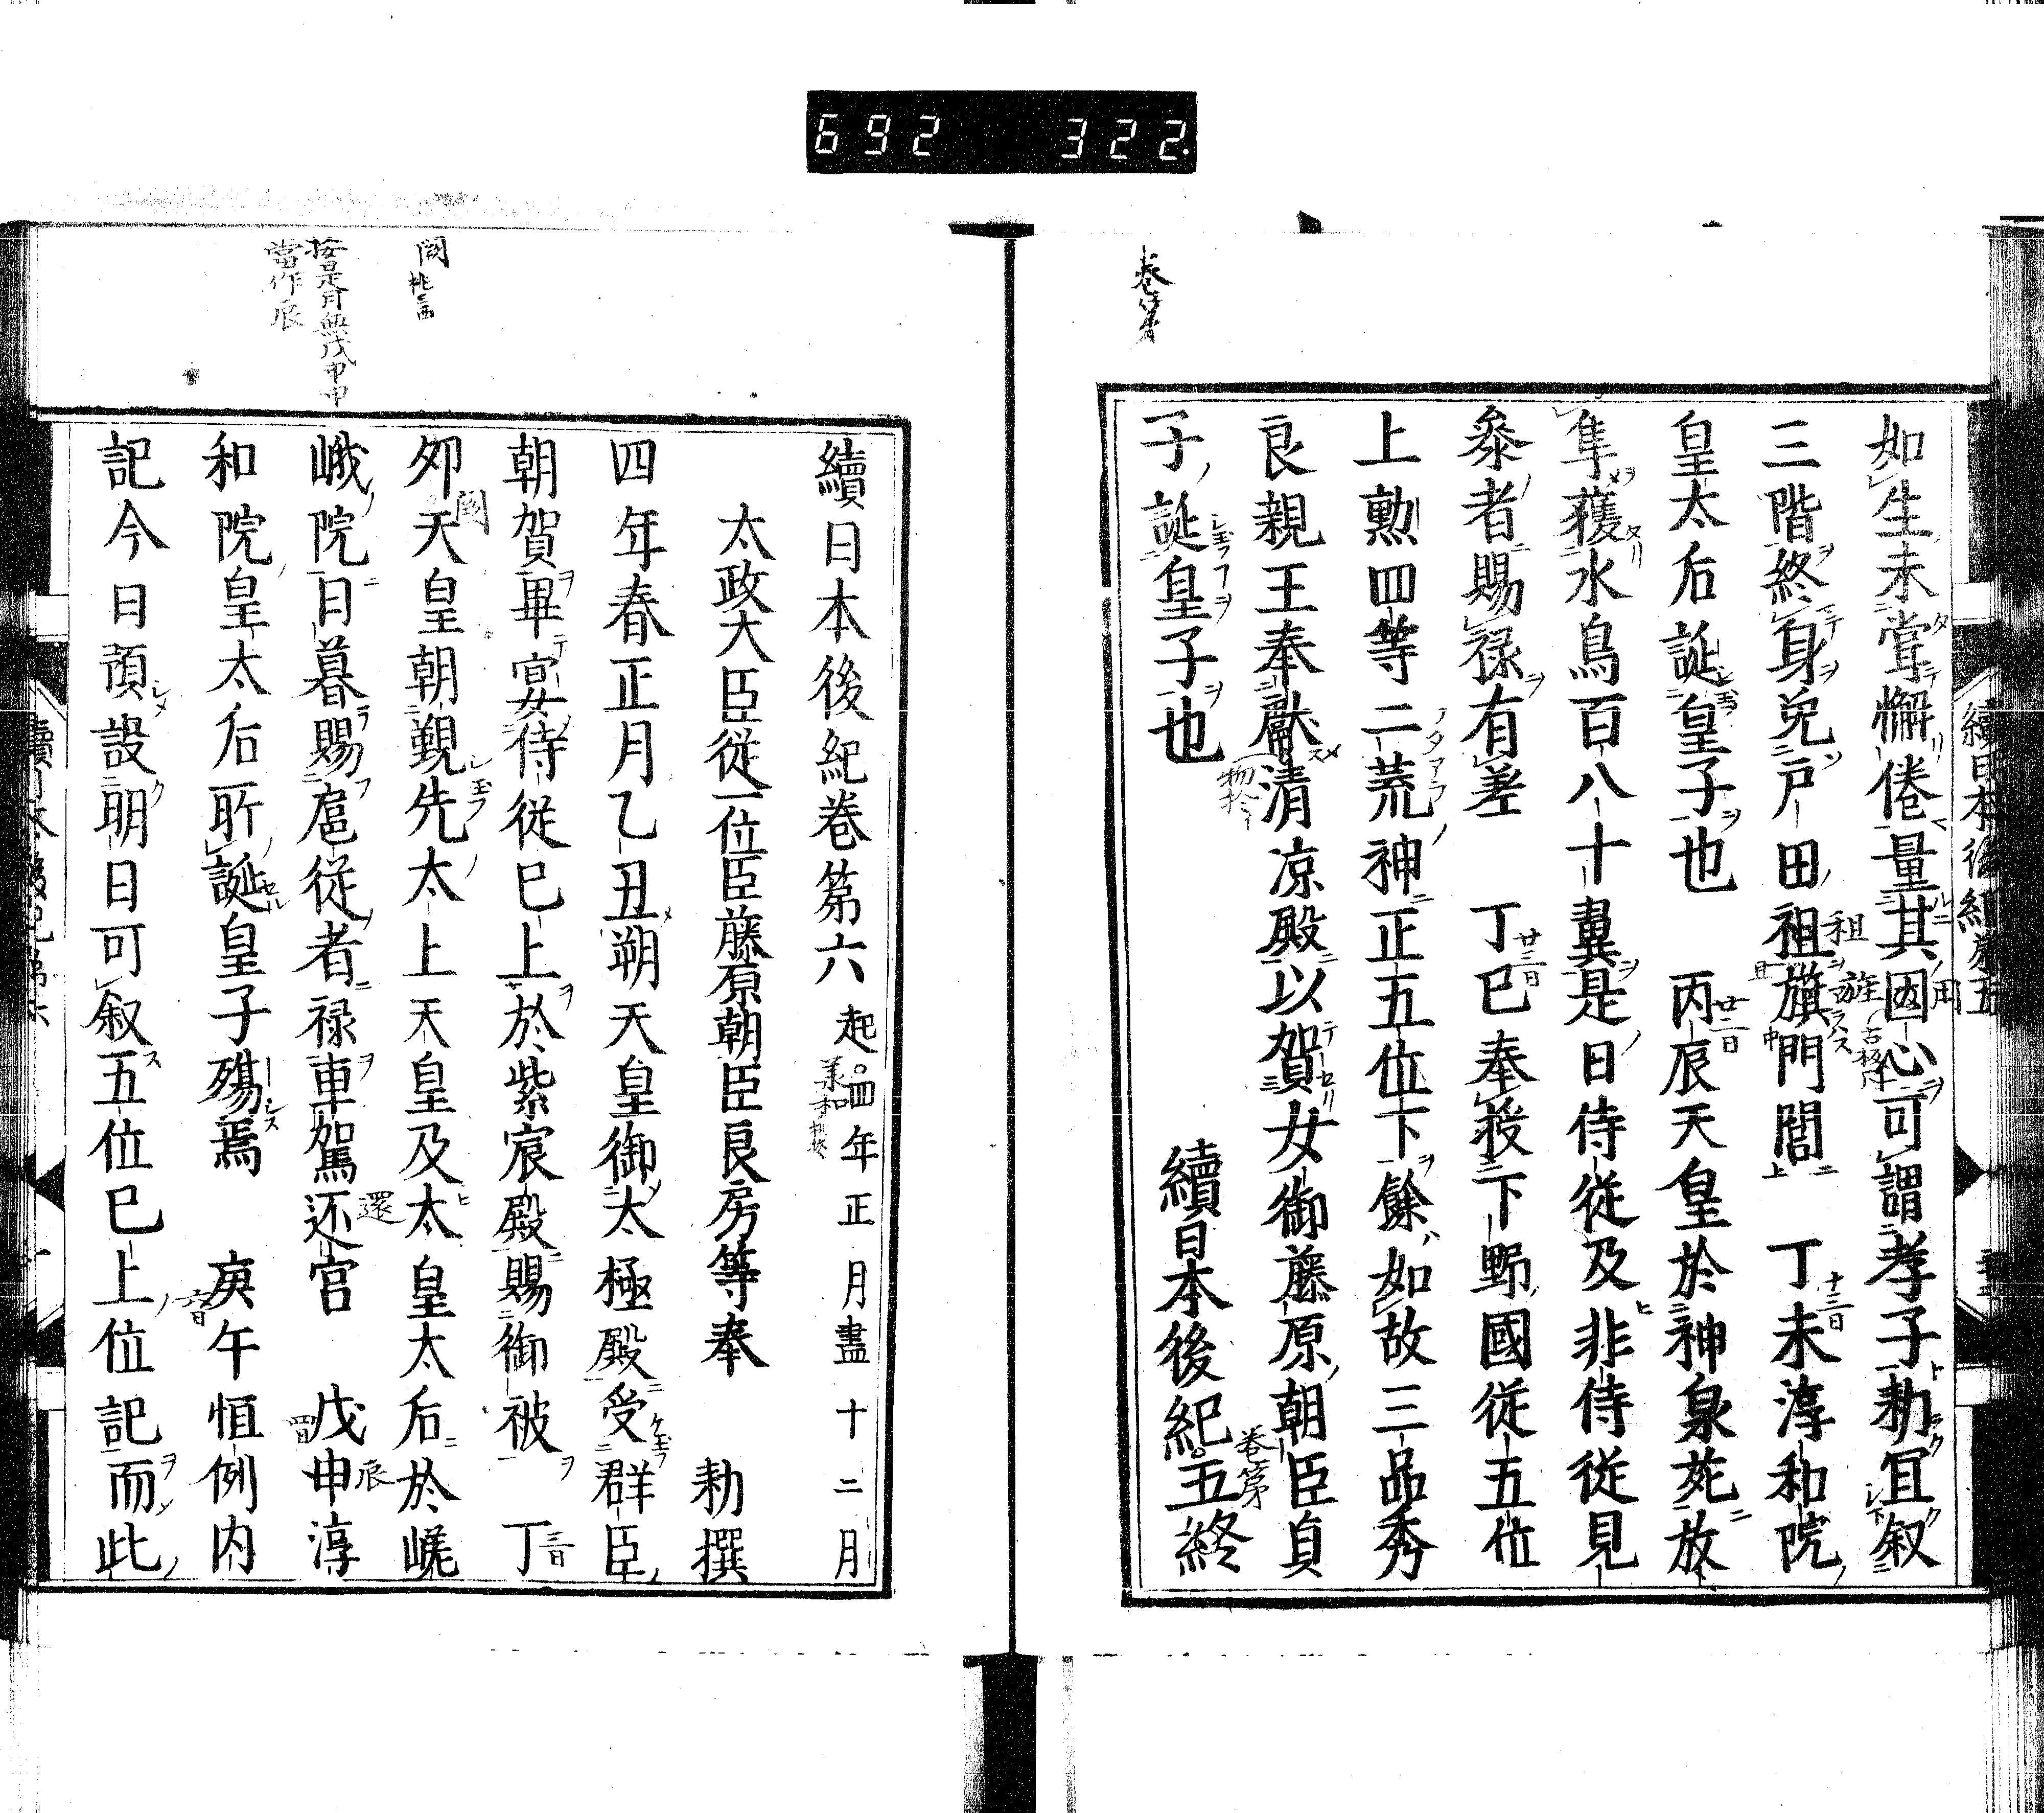 692 322
如生未嘗懈倦量其因心可謂孝子勅冝叙
三階終身免戸田祖旗門閭 丁未淳和院
皇太后誕皇子也 丙辰天皇於神泉苑放
隼獲水鳥百八十翼是日侍従及非侍従見
叅者賜禄有差 丁巳奉授下野國従五位
上勲四等二荒神正五位下餘如故三品秀
良親王奉獻清凉殿以賀女御藤原朝臣貞
子誕皇子也 續日本後紀五終
續日本後紀巻第六 起四年正月盡十二月
太政大臣従一位臣藤原朝臣良房等奉 勅撰
四年春正月乙丑朔天皇御太極殿受群臣
朝賀畢宴侍従已上於紫宸殿賜御被 丁
夘天皇朝覲先太上天皇及太皇太后於嵯
峨院日暮賜扈従者禄車駕还宮 戊申淳
和院皇太后所誕皇子殤焉 庚午恒例内
記今日預設明日可叙五位已上位記而此
巻第
祖
旌
廿二日
十三日
廿三日
巻第
闕
按是月無戊申申
當作辰
承和
三日
還
四日
辰
六日